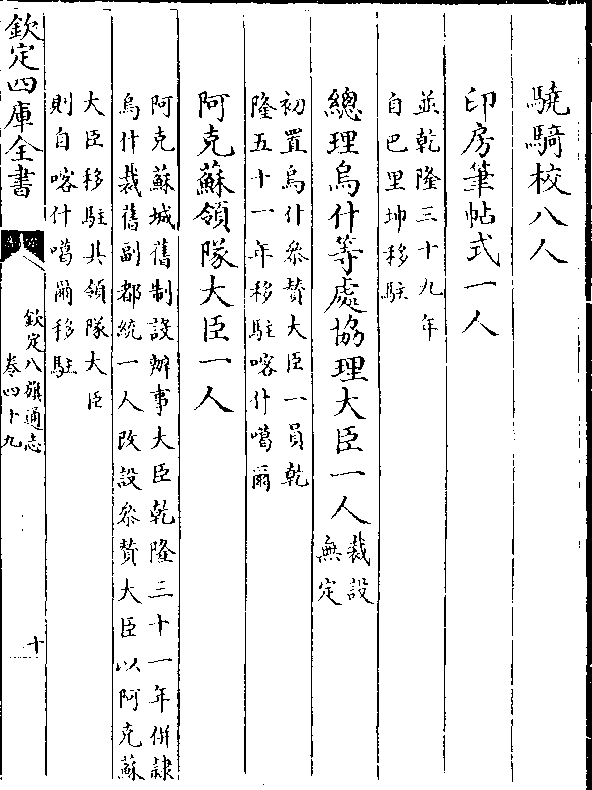 驍騎校八人
印房筆帖式一人
並乾隆三十九年
自巴里坤移駐
總理烏什等處協理大臣一人裁設
無定
初置烏什叅贊大臣一員乾
隆五十一年移駐喀什噶爾
阿克蘇領隊大臣一人
阿克蘇城舊制設辦事大臣乾隆三十一年併隷
烏什裁舊副都統一人改設叅贊大臣以阿克蘇
大臣移駐其領隊大臣
則自喀什噶爾移駐
欽定四庫全書
欽定八旗通志
卷四十九
十